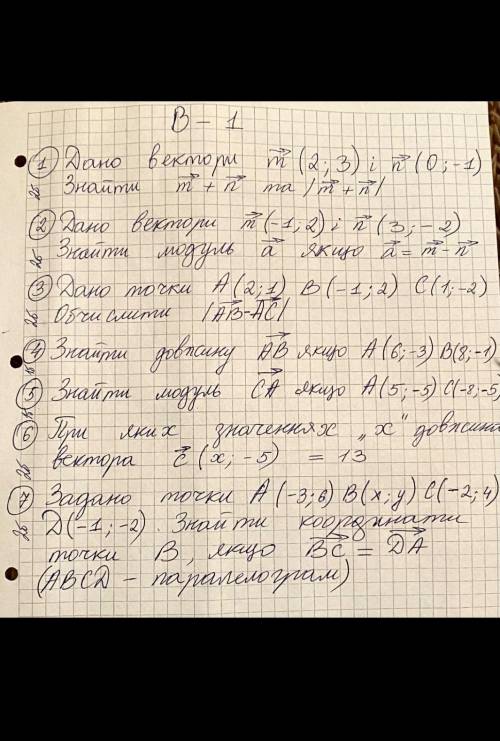 В - 1
① Дано вектори m (2; 3) і n (0; -1)
2б Знайти m + n та |m + n|
② Дано вектори m (-1; 2) і n (3; -2)
2б Знайти модуль a якщо a = m - n
③ Дано точки А (2; 1) В (-1; 2) С (1; -2)
2б Обчислити |AB - AC|
④ Знайти довжину AB якщо А (6; -3) В(8; -1)
1б
⑤ Знайти модуль CA якщо А(5; -5) С(-8; -5)
1б
⑥ При яких значеннях „x" довжина
2б вектора c (x; -5) = 13
⑦ Задано точки А (-3; 6) В(x; y) С(-2; 4)
2б D(-1; -2). Знайти координати
точки В, якщо BC = DA
(ABCD - паралелограм)